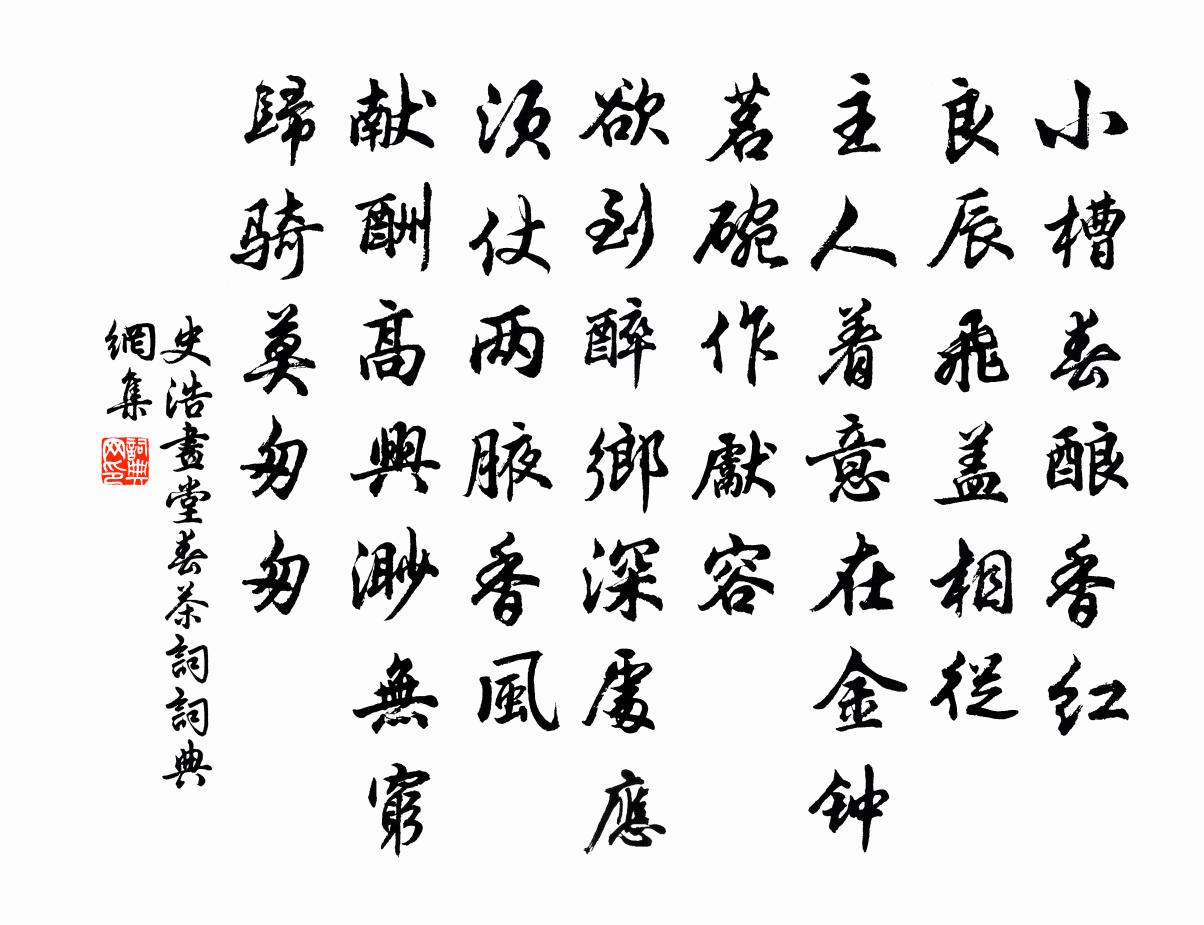 小槽春酿香红
良辰飛盖相從
主人着意在金钟
茗碗作獻容
欲到醉鄉深處應
須仗两腋香風
献酬高興渺無窮
歸骑莫匆匆
史浩畫堂春茶詞詞典
網集
詞典
网印